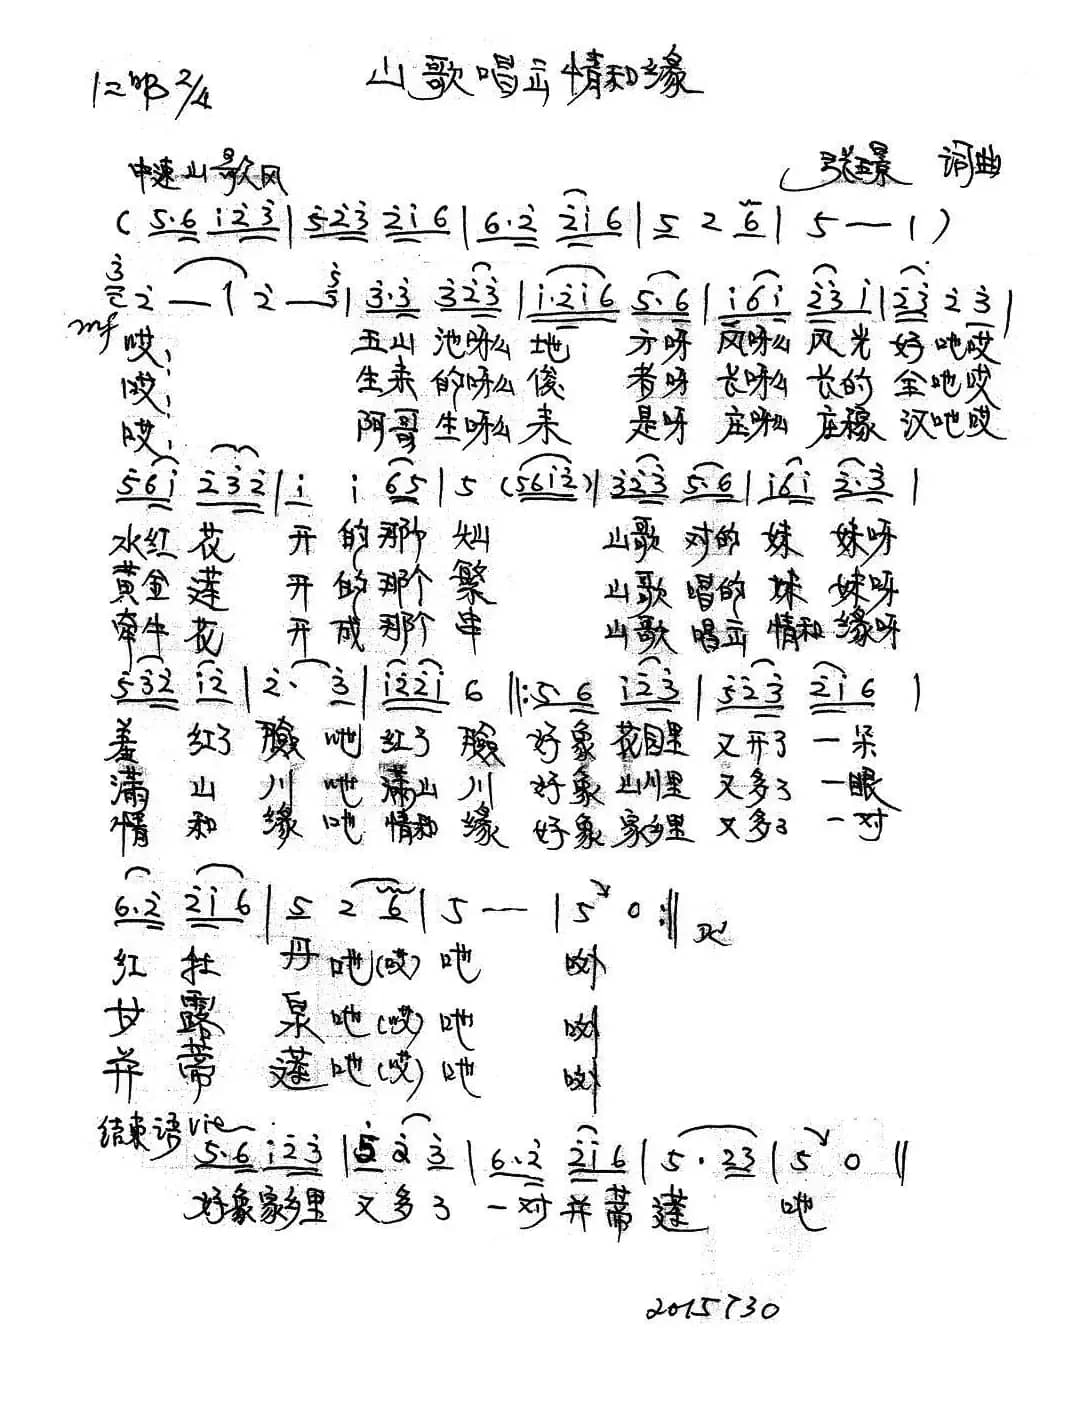 山歌唱出情和缘
1=bB 2/4
中速 山歌风
词曲
( 5·6 i 2 3 | 5 2 3 2 i 6 | 6·2 2 i 6 | 5 2 6 | 5 — 1 )
3 2 2 — 1 2 — 5 3 | 3·3 3 2 3 | i·2 i 6 5·6 | i 6 i 2 3 i | 2 3 2 3 |
mf 哎, 五山 池呀么 地 方呀 风呀么 风光 好吔哎
哎, 生来 的呀么 俊 者呀 长呀么 长的 全吔哎
哎, 阿哥 生呀么 来 是呀 庄呀么 庄稼 汉吔哎
5 6 i 2 3 2 | i i 6 5 | 5 (5 6 i 2) | 3 2 3 5·6 | i 6 i 2·3 |
水红 花 开 的 那个 灿 山歌 对的 妹 妹呀
黄金 莲 开 的 那个 繁 山歌 唱的 妹 妹呀
牵牛 花 开 成 那个 串 山歌 唱出 情和 缘呀
5 3 2 i 2 | 2· 3 | i 2 2 i 6 ‖: 5·6 i 2 3 | 5 2 3 2 i 6 |
羞 红了 脸 吔 红了 脸 好象 花园里 又开了 一朵
满 山 川 吔 满山 川 好象 山川里 又多了 一眼
情 和 缘 吔 情和 缘 好象 家乡里 又多了 一对
6·2 2 i 6 | 5 2 6 | 5 — | 5 0 :‖ DC
红 牡 丹 吔(哎) 吔 呦
甘 露 泉 吔(哎) 吔 呦
并 蒂 莲 吔(哎) 吔 呦
结束语
5·6 i 2 3 | 5 2 3 | 6·2 2 i 6 | 5· 2 3 | 5 0 ‖
好象 家乡里 又 多 了 一对 并 蒂 莲 吔
2015730